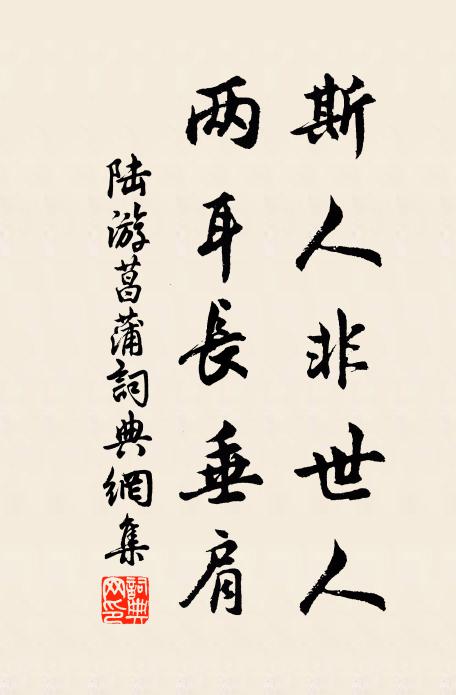 斯人非世人
两耳長垂肩
陆游菖蒲詞典網集
詞典网印